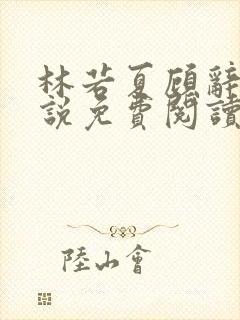 林若夏顾辞
說免費閱讀
陸山會